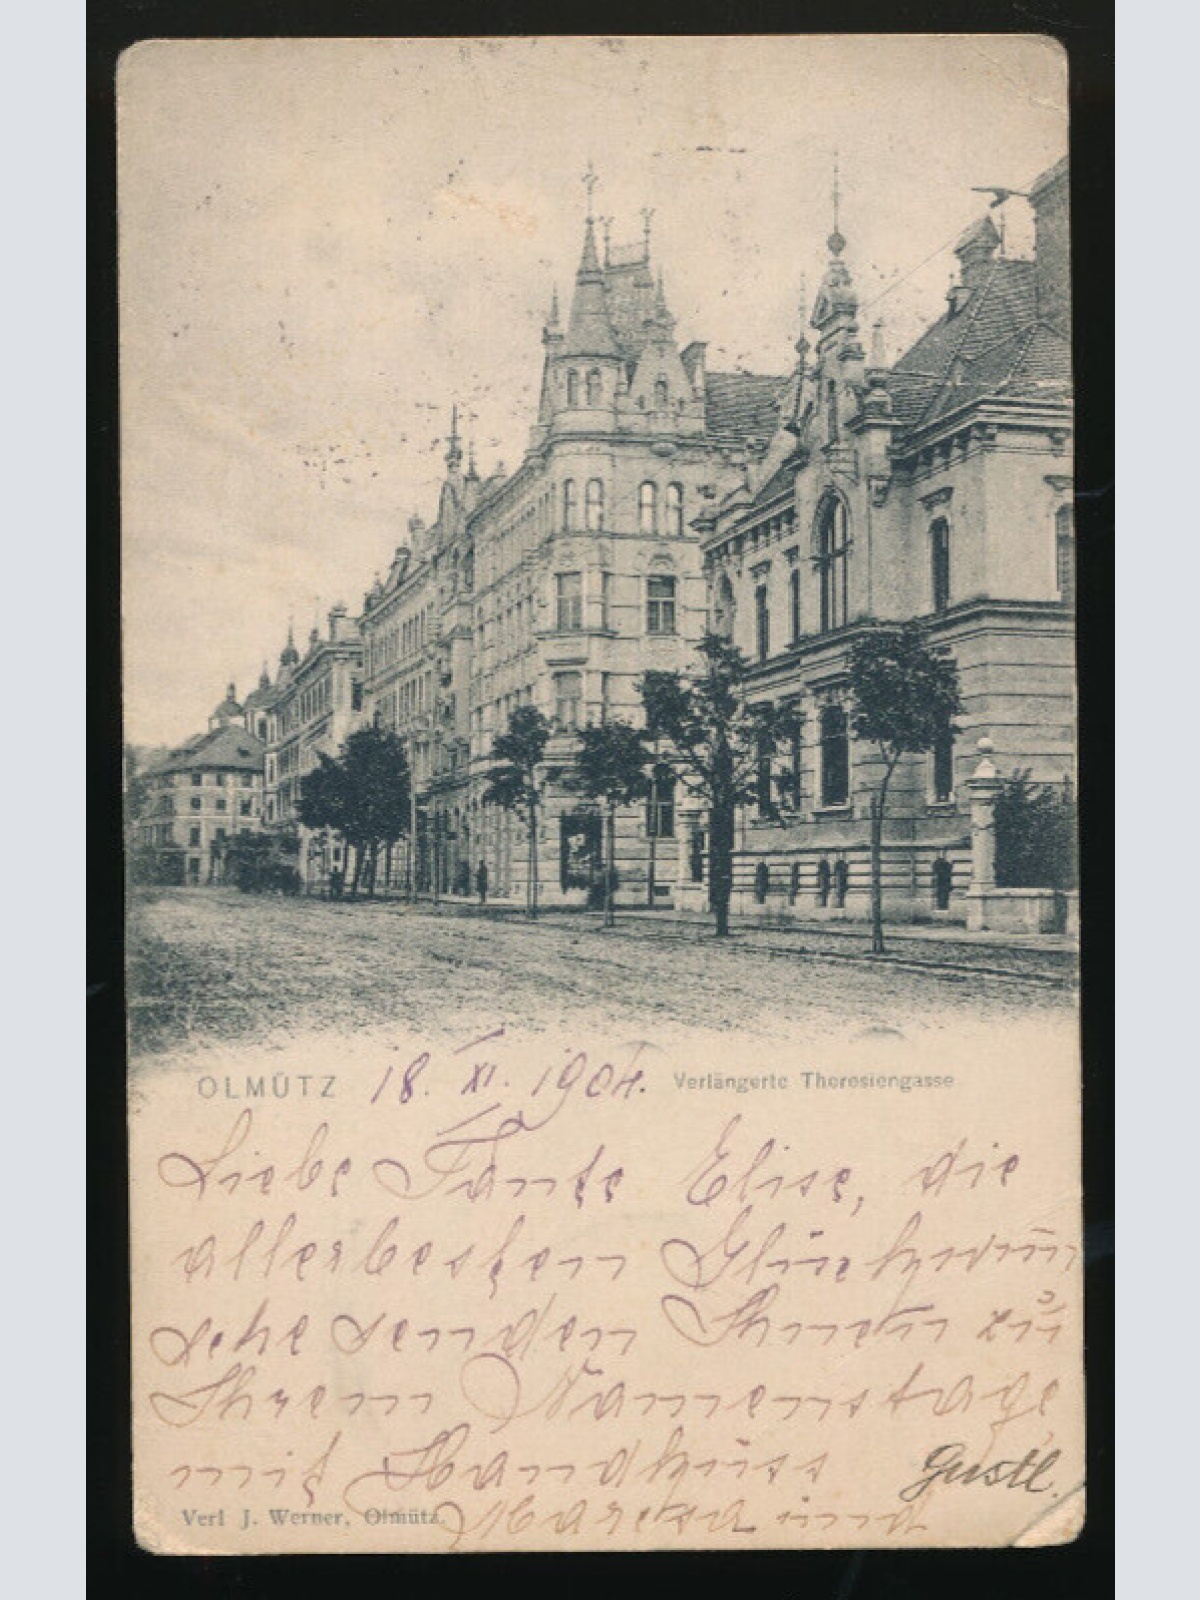 OLMÜTZ 18. XI. 1904. Verlängerte Theresiengasse
Liebe Tante Elise, die
allerbesten Glückwün
sche senden Ihnen zu
Ihrem Namenstage
mit Handkuss Gustl.
Verl J. Werner, Olmütz. und